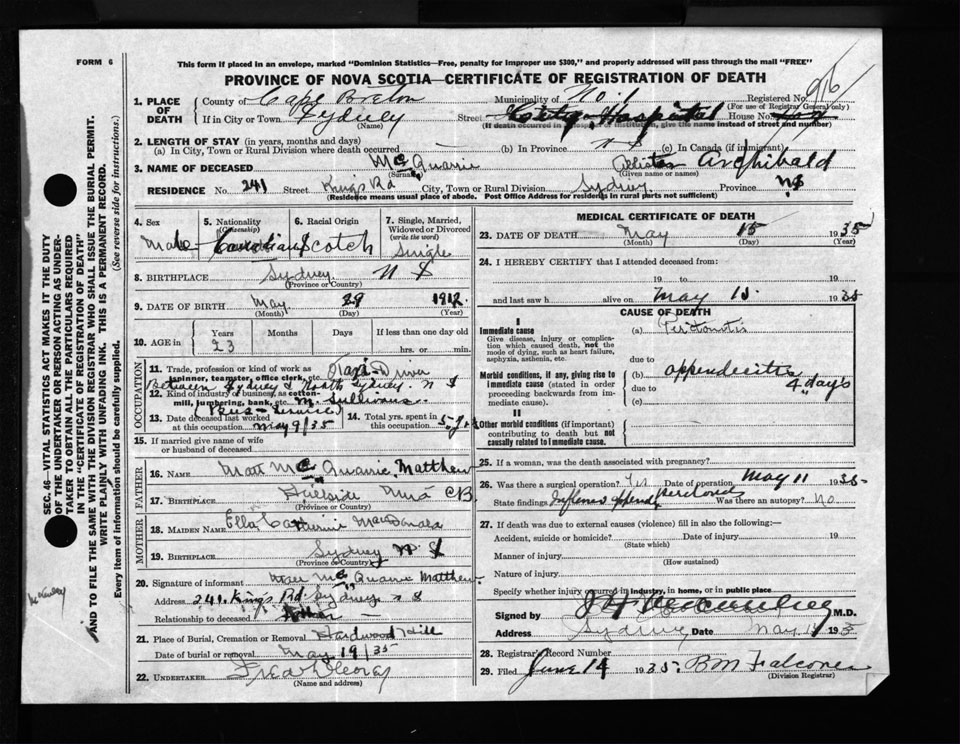 FORM 6
This form if placed in an envelope, marked "Dominion Statistics—Free, penalty for improper use $300," and properly addressed will pass through the mail "FREE"
PROVINCE OF NOVA SCOTIA—CERTIFICATE OF REGISTRATION OF DEATH
1. PLACE OF DEATH County of Cape Breton Municipality of No. 1 Registered No. 916
(For use of Registrar General only)
If in City or Town Sydney Street City Hospital House No.
(Name) (If death occurred in a hospital or institution, give the name instead of street and number)
2. LENGTH OF STAY (in years, months and days)
(a) In City, Town or Rural Division where death occurred (b) In Province N S (c) In Canada (if immigrant)
3. NAME OF DECEASED McQuarrie Allister Archibald
(Surname) (Given name or names)
RESIDENCE No. 241 Street Kings Rd City, Town or Rural Division Sydney Province NS
(Residence means usual place of abode. Post Office Address for residents in rural parts not sufficient)
4. Sex 5. Nationality (Citizenship) 6. Racial Origin 7. Single, Married, Widowed or Divorced (write the word)
Male Canadian Scotch Single
8. BIRTHPLACE Sydney N S
(Province or Country)
9. DATE OF BIRTH May 29 1912
(Month) (Day) (Year)
10. AGE in Years Months Days If less than one day old
23 hrs. or min.
OCCUPATION
11. Trade, profession or kind of work as spinner, teamster, office clerk, etc. Driver
Between Sydney & North Sydney. N S
12. Kind of industry or business, as cotton-mill, lumbering, bank, etc. M. Sullivans
(Bus-Service)
13. Date deceased last worked at this occupation May 9/35 14. Total yrs. spent in this occupation 5
15. If married give name of wife or husband of deceased
FATHER
16. NAME Matt McQuarrie, Matthew
17. BIRTHPLACE Hillside Mira CB
(Province or Country)
MOTHER
18. MAIDEN NAME Ella Catherine MacDonald
19. BIRTHPLACE Sydney N S
(Province or Country)
20. Signature of informant McQuarrie Matthew
Address 241. Kings Rd. Sydney N S
Relationship to deceased Father
21. Place of Burial, Cremation or Removal Hardwood Hill
Date of burial or removal May 19/35
22. UNDERTAKER
(Name and address)
MEDICAL CERTIFICATE OF DEATH
23. DATE OF DEATH May 15 1935
(Month) (Day) (Year)
24. I HEREBY CERTIFY that I attended deceased from:
19 to 19
and last saw h alive on May 15 1935
CAUSE OF DEATH
I
Immediate cause (a) Peritonitis
Give disease, injury or complication which caused death, not the mode of dying, such as heart failure, asphyxia, asthenia, etc.
due to
Morbid conditions, if any, giving rise to immediate cause (stated in order proceeding backwards from immediate cause). (b) appendicitis 4 days
due to
(c)
II
Other morbid conditions (if important) contributing to death but not causally related to immediate cause.
25. If a woman, was the death associated with pregnancy?
26. Was there surgical operation? Yes Date of operation May 11 1935
State findings Inflamed appendix Was there an autopsy? No
27. If death was due to external causes (violence) fill in also the following:—
Accident, suicide or homicide? Date 19
(State which)
Manner of injury
(How sustained)
Nature of injury
Specify whether injury occurred in industry, in home, or in public place
Signed by M.D.
Address Sydney Date May 1935
28. Registrar's Record Number
29. Filed June 14 1935. B M Falconer
(Division Registrar)
SEC. 46—VITAL STATISTICS ACT MAKES IT THE DUTY OF THE UNDERTAKER OR PERSON ACTING AS UNDERTAKER TO OBTAIN ALL THE PARTICULARS REQUIRED IN THE "CERTIFICATE OF REGISTRATION OF DEATH" AND TO FILE THE SAME WITH THE DIVISION REGISTRAR WHO SHALL ISSUE THE BURIAL PERMIT.
WRITE PLAINLY WITH UNFADING INK. THIS IS A PERMANENT RECORD.
Every item of information should be carefully supplied. (See reverse side for instructions.)